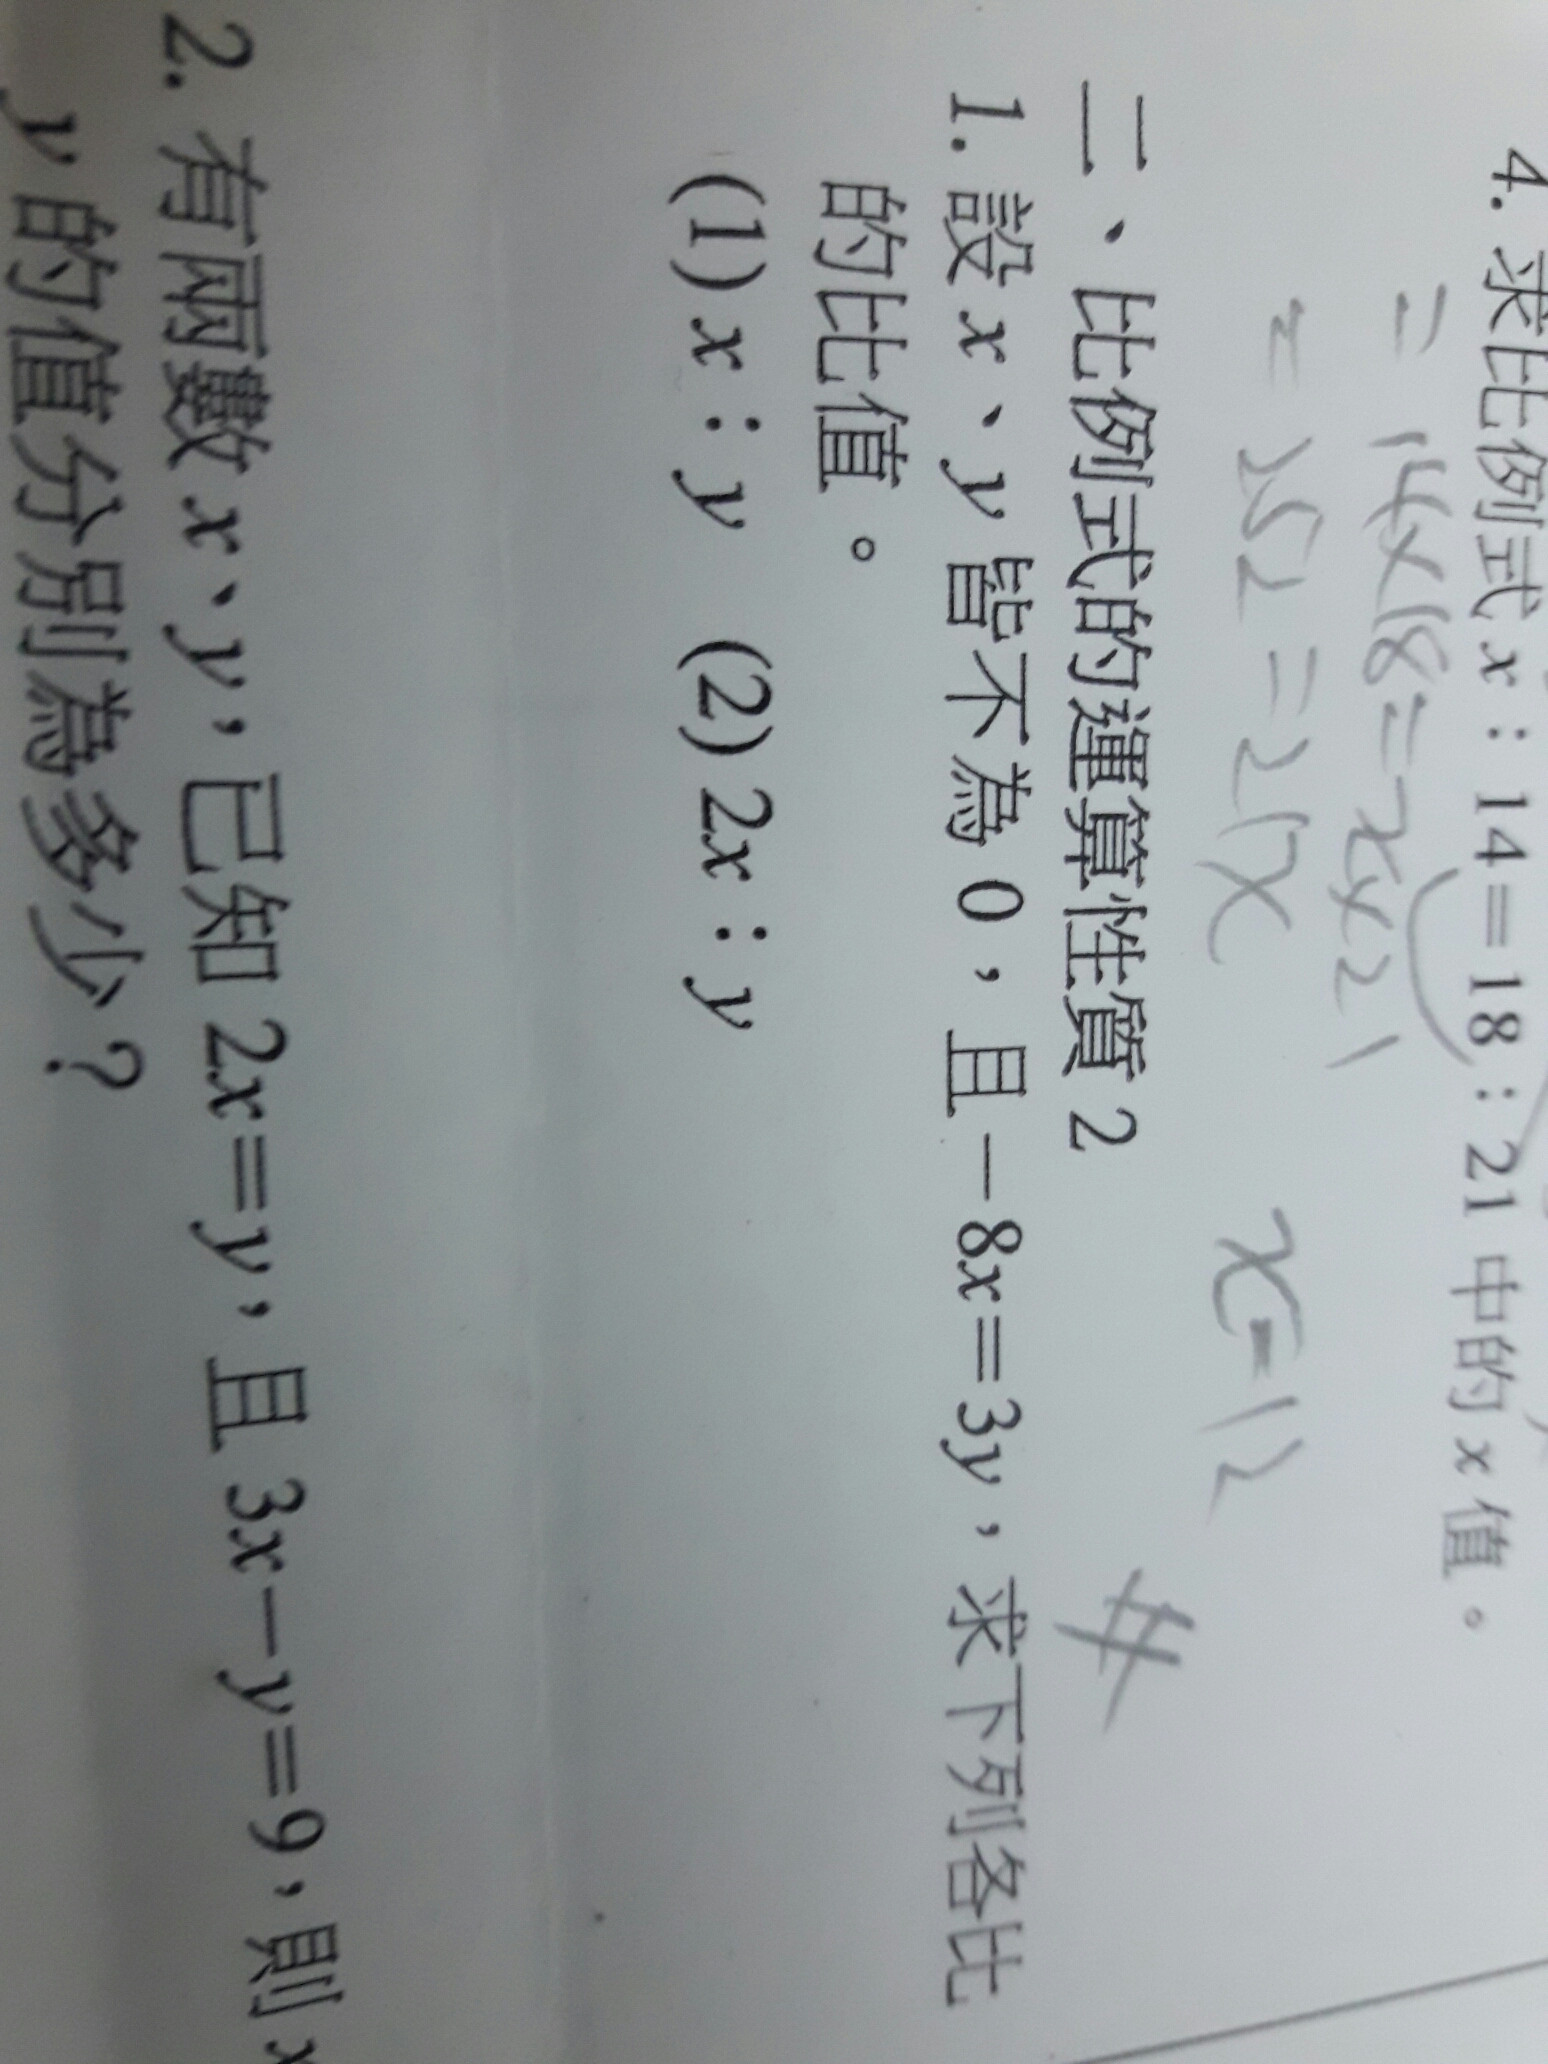 4. 求比例式 x：14＝18：21 中的 x 值。
= 14×18=x×21
= 252=21x x=12
#
二、比例式的運算性質 2
1. 設 x、y 皆不為 0，且－8x＝3y，求下列各比
的比值。
(1) x：y (2) 2x：y
2. 有兩數 x、y，已知 2x＝y，且 3x－y＝9，則 x
y 的值分別為多少？